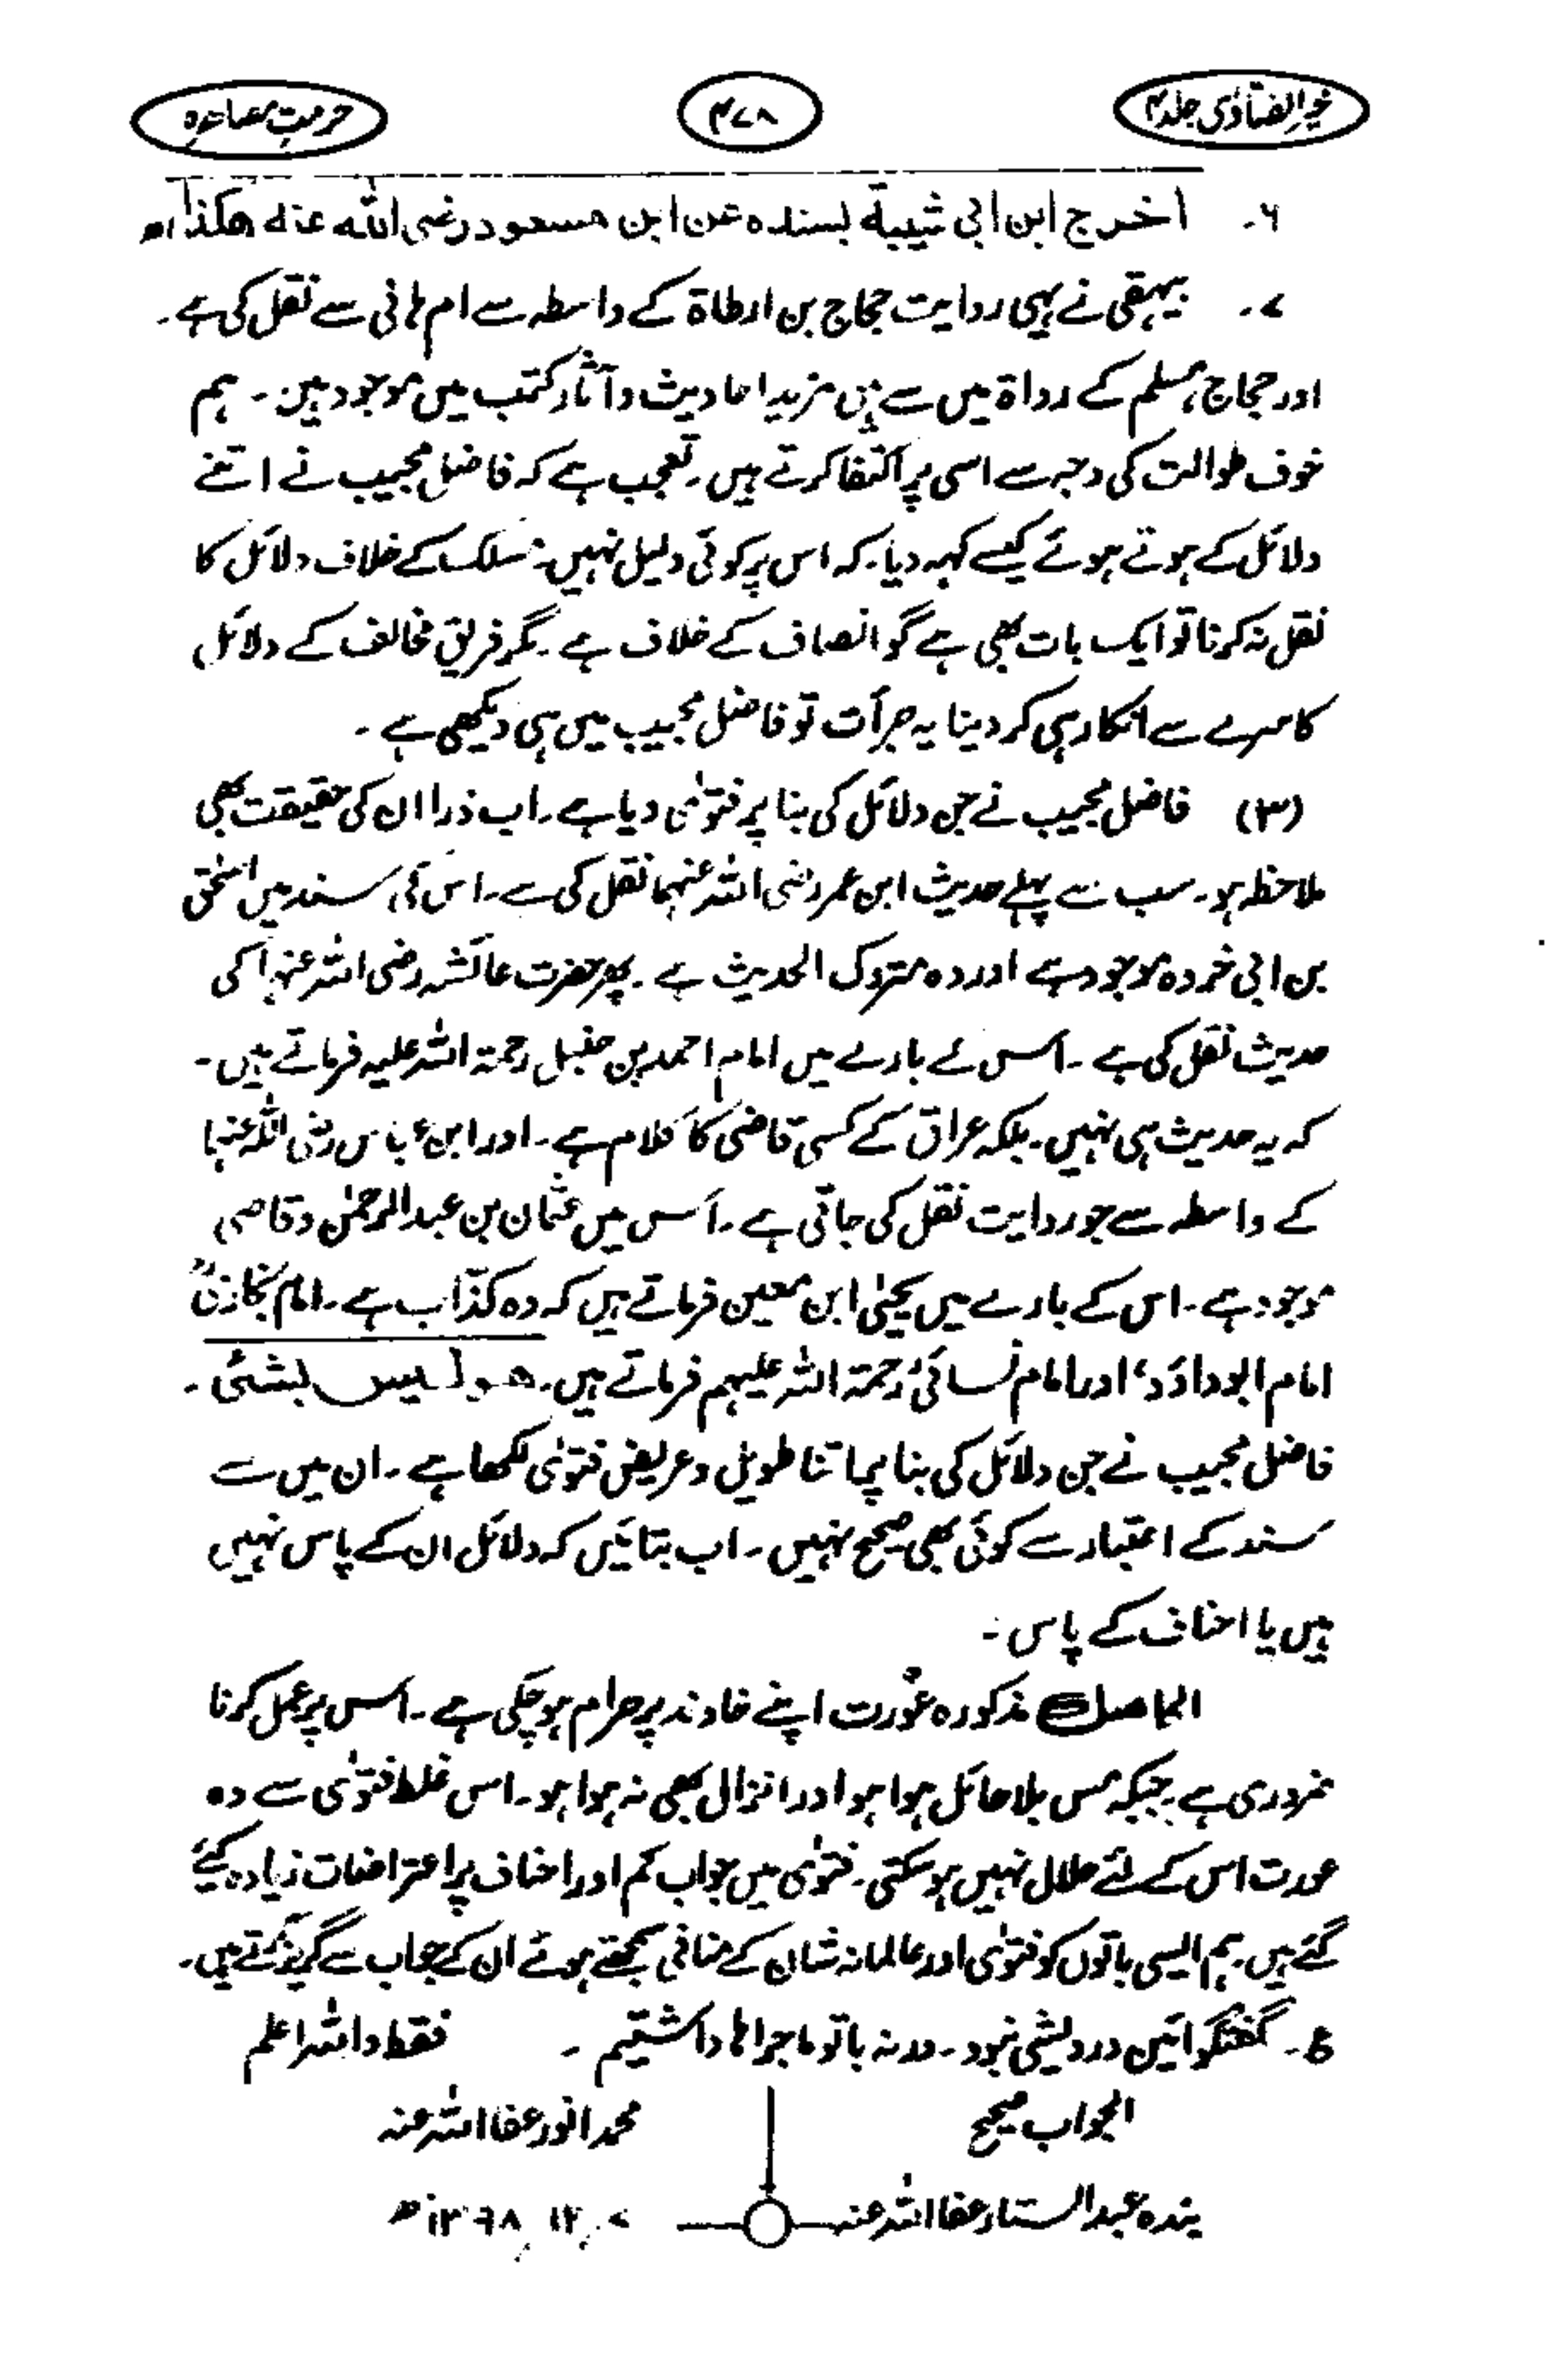 خیر الفتاوٰی جلد ۴
۴۷۸
حرمتِ مصاہرہ
۶۔ اخرج ابن ابی شیبة بسندہ عن ابن مسعود رضی اللّٰہ عنہ ھکذا اھ
۷۔ بیہقی نے یہی روایت حجاج بن ارطاة کے واسطہ سے ام ہانی سے نقل کی ہے۔
اور حجاج، مسلم کے رواة میں سے ہیں مزید احادیث و آثار کتب میں موجود ہیں۔ ہم
خوف طوالت کی وجہ سے اسی پر اکتفا کرتے ہیں۔ تعجب ہے کہ فاضل مجیب نے اتنے
دلائل کے ہوتے ہوئے کیسے کہہ دیا۔ کہ اس پر کوئی دلیل نہیں۔ مسلک کے خلاف دلائل کا
نقل نہ کرنا تو ایک بات بھی ہے گو انصاف کے خلاف ہے۔ مگر فریق مخالف کے دلائل
کا سرے سے انکار ہی کر دینا یہ جرأت تو فاضل مجیب میں ہی دیکھی ہے۔
(۳) فاضل مجیب نے جن دلائل کی بنا پر فتوٰی دیا ہے۔ اب ذرا ان کی حقیقت بھی
ملاحظہ ہو۔ سب سے پہلے حدیث ابن عمر رضی اللہ عنہما نقل کی ہے۔ اس کی سند میں اسحٰق
بن ابی فروہ موجود ہے اور وہ متروک الحدیث ہے۔ پھر حضرت عائشہ رضی اللہ عنہا کی
حدیث نقل کی ہے۔ اس کے بارے میں امام احمد بن حنبل رحمة اللہ علیہ فرماتے ہیں۔
کہ یہ حدیث ہی نہیں۔ بلکہ عراق کے کسی قاضی کا کلام ہے۔ اور ابن عباس رضی اللہ عنہما
کے واسطہ سے جو روایت نقل کی جاتی ہے۔ اس میں عثمان بن عبد الرحمٰن وقاصی
موجود ہے۔ اس کے بارے میں یحیٰی ابن معین فرماتے ہیں کہ وہ کذّاب ہے۔ امام بخاریؒ
امام ابو داؤد، اور امام نسائیؒ رحمة اللہ علیہم فرماتے ہیں۔ ھو لیس بشئی۔
فاضل مجیب نے جن دلائل کی بنا پر اتنا طویل و عریض فتوٰی لکھا ہے۔ ان میں سے
سند کے اعتبار سے کوئی بھی صحیح نہیں۔ اب بتائیں کہ دلائل ان کے پاس نہیں
ہیں یا احناف کے پاس۔
الحاصل مذکورہ عورت اپنے خاوند پر حرام ہو چکی ہے۔ اس پر عمل کرنا
ضروری ہے۔ جبکہ مس بلا حائل ہوا ہو اور انزال بھی نہ ہوا ہو۔ اس غلط فتوٰی سے وہ
عورت اس کے لئے حلال نہیں ہو سکتی۔ فتوٰی میں جواب کم اور احناف پر اعتراضات زیادہ کیے
گئے ہیں۔ ہم ایسی باتوں کو فتوٰی اور عالمانہ شان کے منافی سمجھتے ہوئے ان کے جواب سے گریز کرتے ہیں۔
ع۔ گفتگو آئین درویشی نبود۔ ورنہ با تو ماجرا ہا داشتیم۔ فقط واللہ اعلم
الجواب صحیح محمد انور عفا اللہ عنہ
بندہ عبد الستار عفا اللہ عنہ ۷ / ۱۲ /